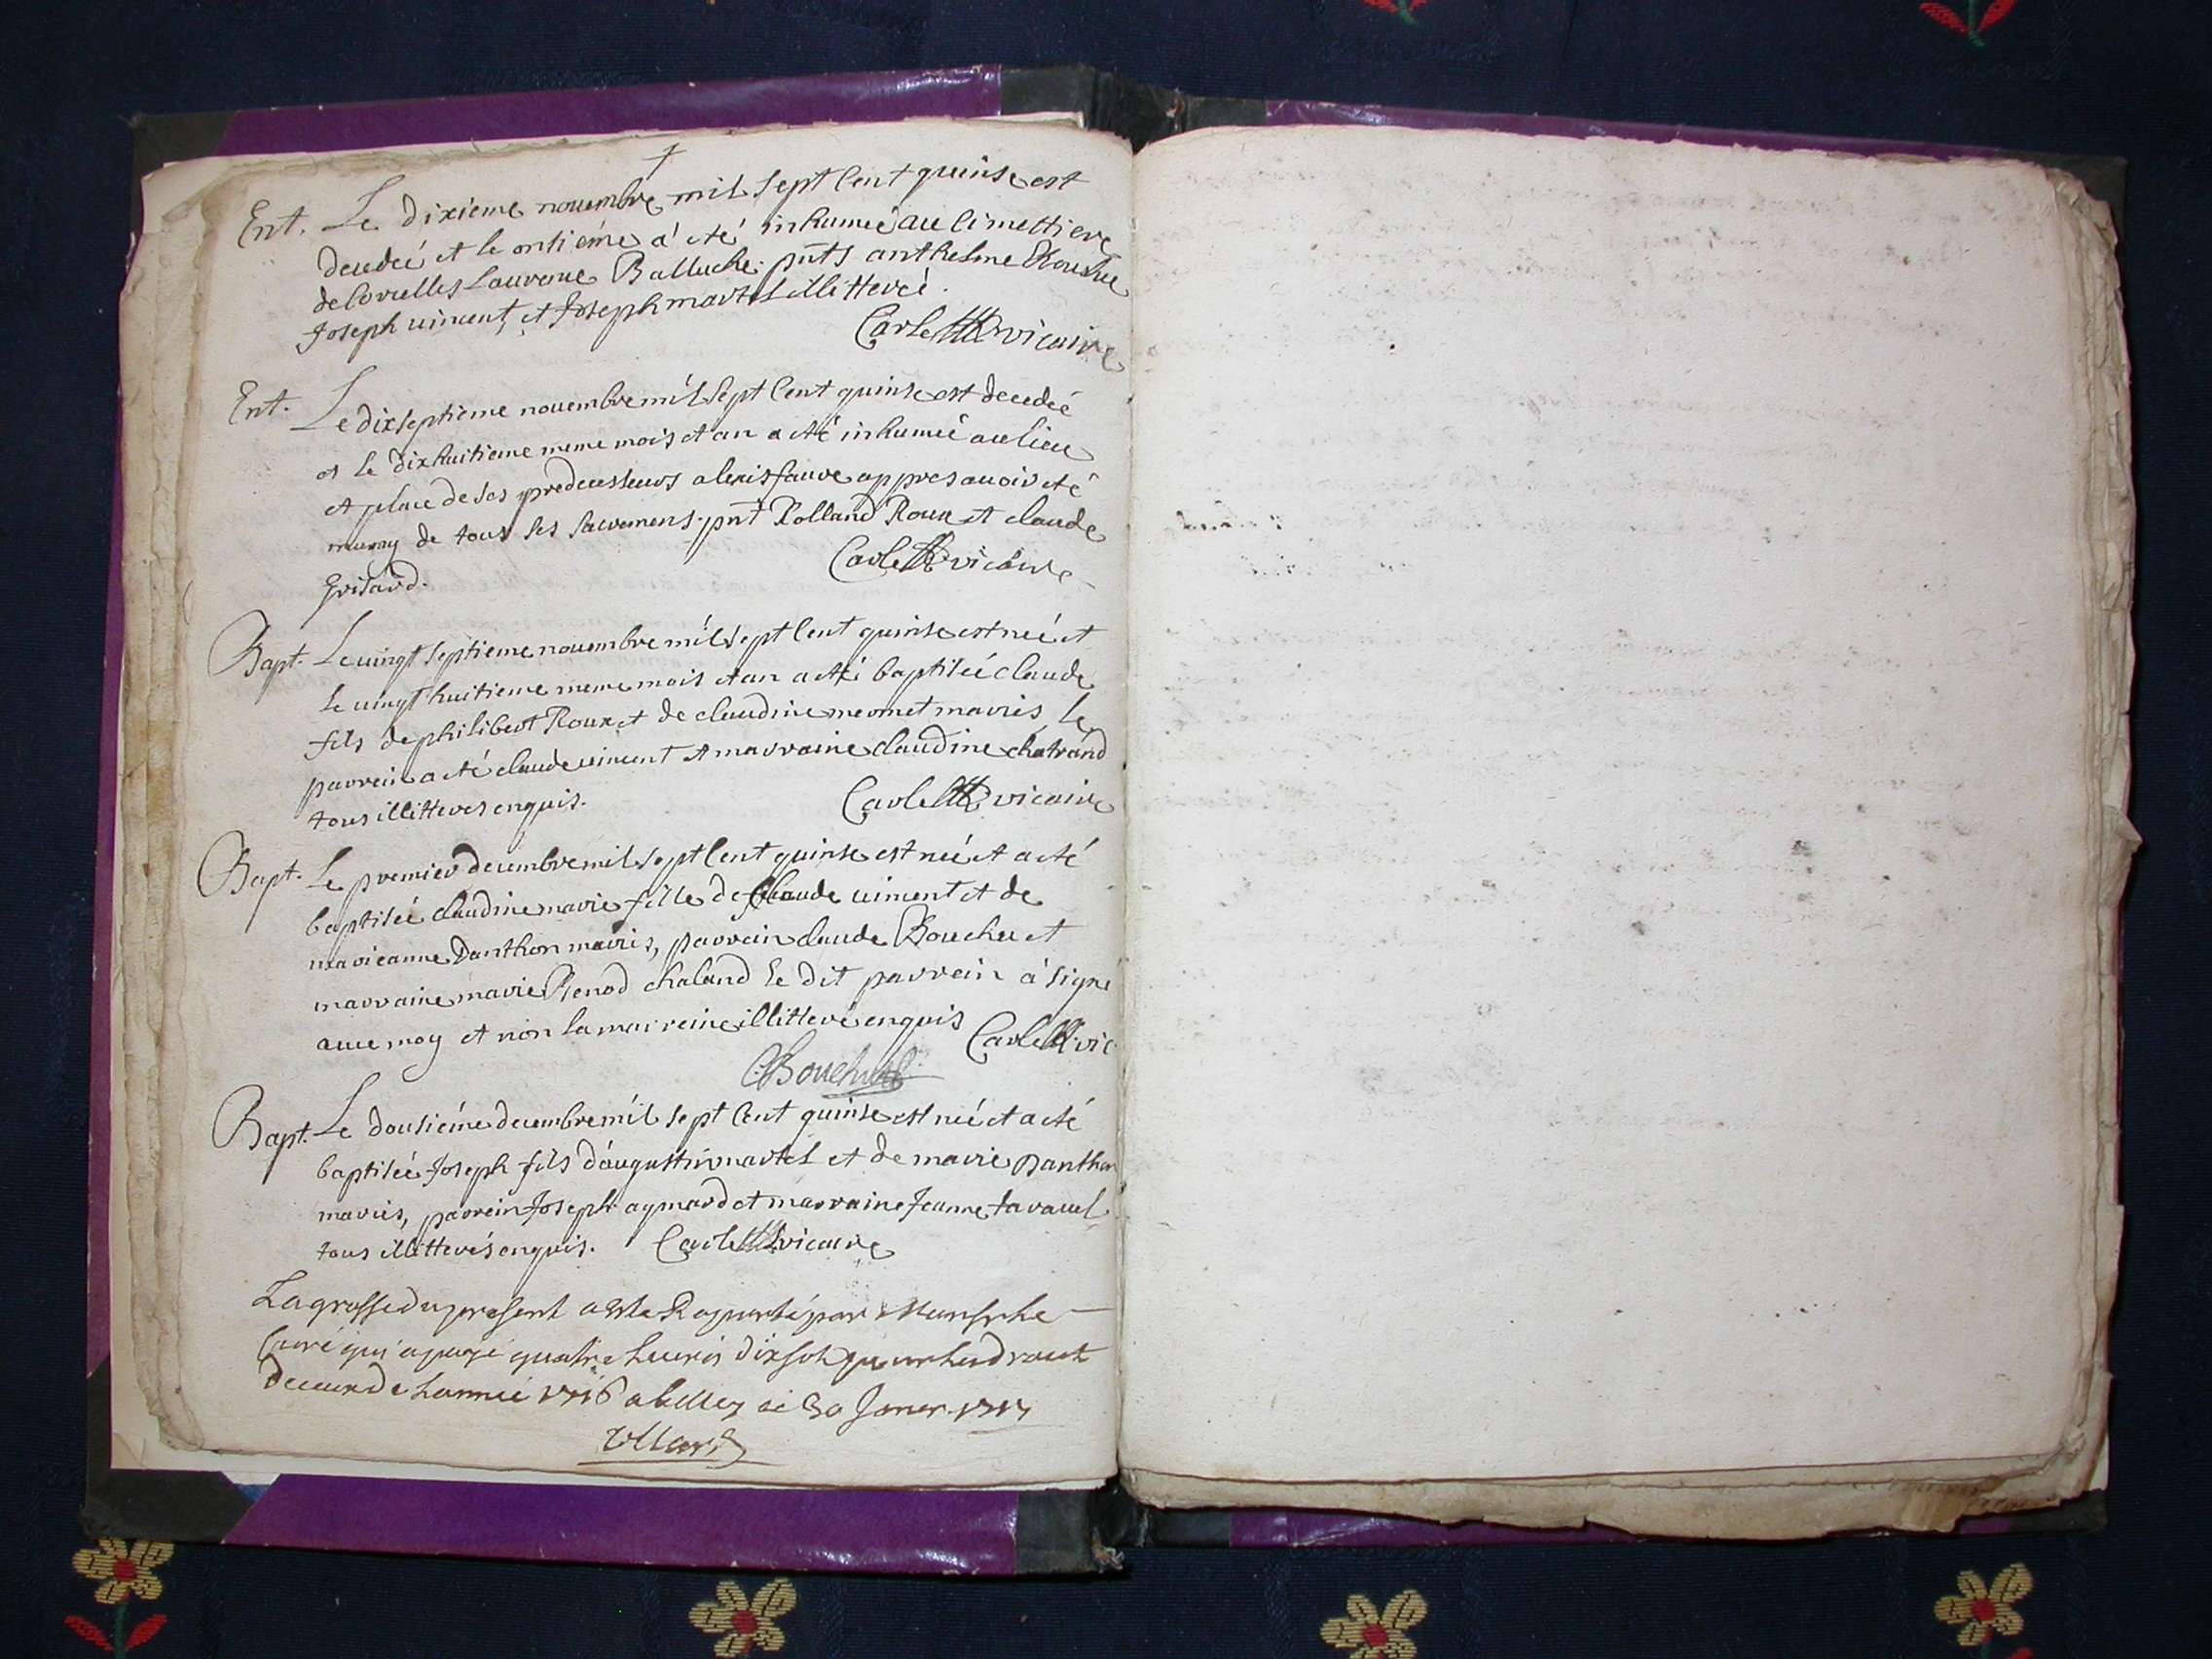 Ent. Le dixieme nouembre mil sept Cent quinse est
decedeé et le onsiéme a' eté inhumeé au Cimettiere
de Corcelles Laurence Balluche. pnts anthelme
Joseph uincent, et Joseph martel illitteré.
Carle vicaire
Ent. Le dixseptieme nouembre mil sept Cent quinse est decedeé
et le dixhuitieme meme mois et an a eté inhumeé au lieu
et place de ses predecesseurs alexis fauve appres auoir eté
muny de tous ses sacremens. pnt Rolland Roux et claude
Grisard.
Carle vicaire
Bapt. Le uingt septieme nouembre mil sept Cent quinse est neé et
le uingt huitieme meme mois et an a eté baptiseé claude
fils de philibert Roux et de claudine mermet mariés, le
parrein a eté claude uincent et marraine claudine chatrand
tous illitteres enquis.
Carle vicaire
Bapt. Le premier decembre mil sept Cent quinse est neé et a eté
baptiseé claudine marie fille de Claude uincent et de
marieanne Danthon mariés, parrain claude Bouchu et
marraine marie Renod chaland le dit parrein a' signé
auec moy et non la marreine illitteré enquis
Carle vic.
C. Bouchu
Bapt. Le dousiéme decembre mil sept Cent quinse est neé et a eté
baptiseé Joseph fils d'augustin martel et de marie Danthon
mariés, parrein Joseph aymard et marraine Jeanne
tous illitterés enquis. Carle vicaire
La grosse du present a este Raporté par Monsr le
Curé qui a payé quatre Liures dix sols pour les droicts
de Lanneé 1716 a belley ce 30 Janer 1717